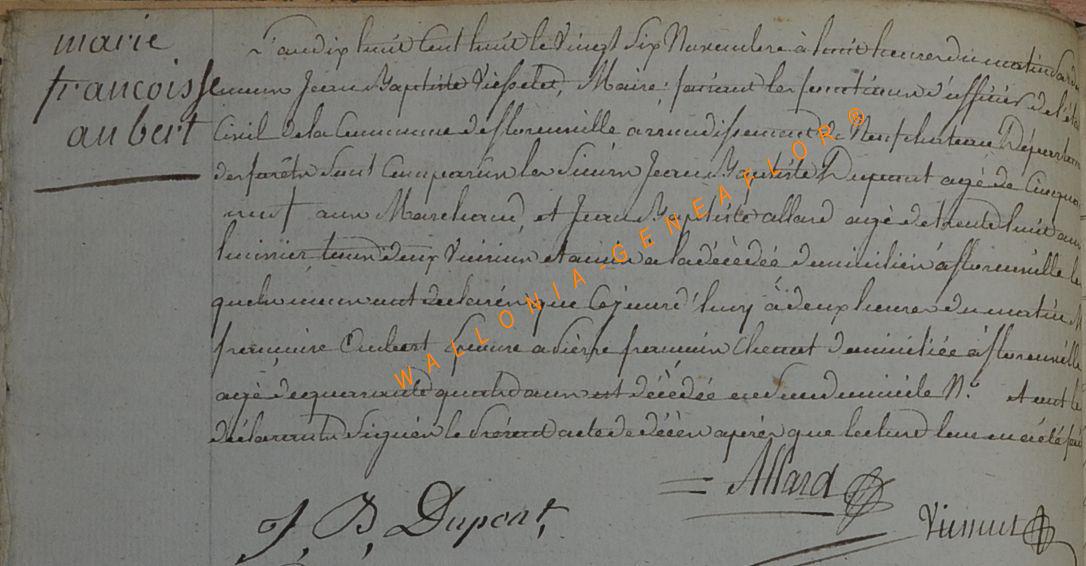 marie
françoisse
aubert
L'an dix huit cent huit le Vingt Six Novembre à huit heures du matin
Jean Baptiste Maire, faisant les fonctions d'officier de l'état
Civil de la Commune de florenville arrondissement de Neufchateau Département
des forêts Sont Comparus les Sieurs Jean Baptiste Dupont agé de Cinquante
neuf ans Marchand et Jean Baptiste allard agé de trente huit ans
tous deux Voisins et amis à la décédée domiciliés à florenville
quels nous ont déclarés que Cejourd'huy à deux heures du matin
françoise Aubert Epouse a pierre françois domiciliée à florenville
agé de quarante quatre ans est décédée en Son domicile N.º et ont les
déclarants Signés le Présent acte de décès après que lecture leur en a été fait
Allard
J, B, Dupont,
WALLONIA-GENEAFLOR®